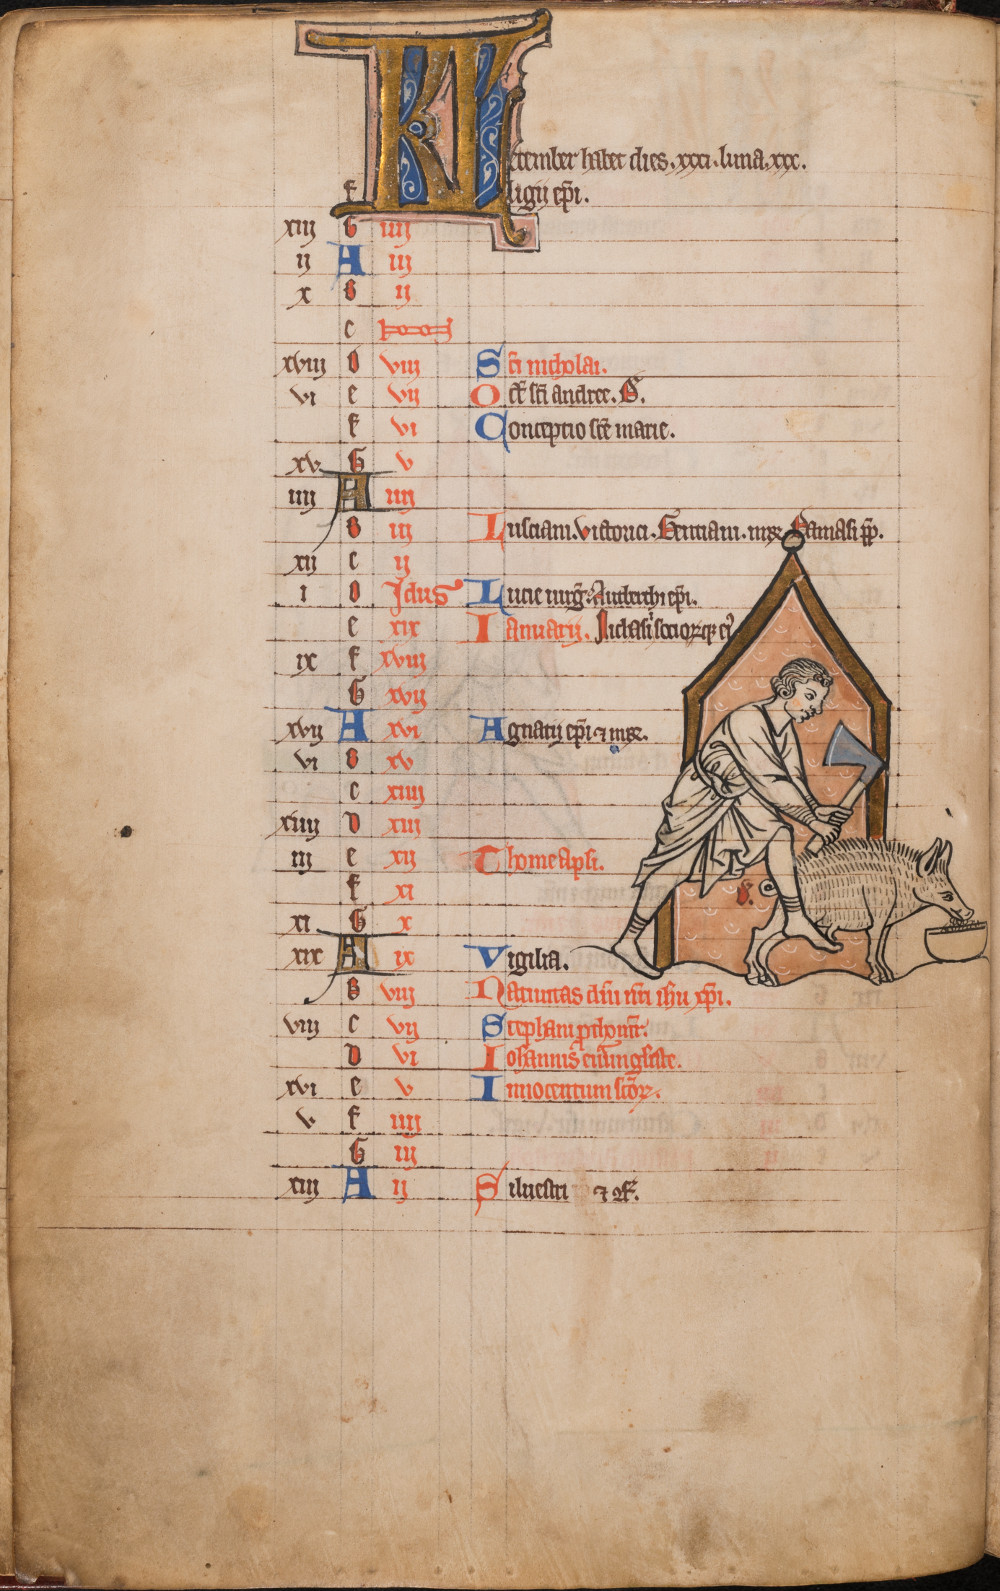 KL
ecember habet dies .xxxi. luna .xxx.
f ligii ep̄i.
xiij G iiij
ij A iij
x B ij
c
xviij D viij Sc̄i nicholai.
vi e vij Oct̄ sc̄i andree.
f vi Conceptio sc̄e marie.
xv G v
iiij A iiij
B iij Lusciani. Victorici. Gentiani. Damasi pp̄.
xij c ij
i D Idus Lucie uirḡ. Autberti ep̄i.
e xix Ianuarij.
ix f xviij
G xvij
xvij A xvi Agnatij ep̄i ⁊
vi B xv
c xiiij
xiiij D xiij
iij e xij Thome apl̄i.
f xi
xi G x
xix A ix Vigilia.
B viij Natiuitas dn̄i nr̄i ih̄u xp̄i.
viij c vij Stephani
D vi Iohannis
xvi e v Innocentum sc̄or̄.
v f iiij
G iij
xiij A ij Siluestri ⁊